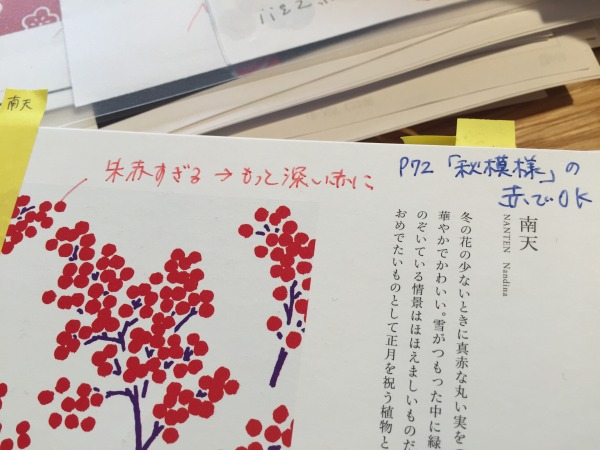 南天
朱赤すぎる → もっと深い赤に
P72「秋模様」の
赤でOK
南天
NANTEN Nandina
冬の花の少ないときに真赤な丸い実を
華やかでかわいい。雪がつもった中に緑
のぞいている情景はほほえましいものだ
おめでたいものとして正月を祝う植物と